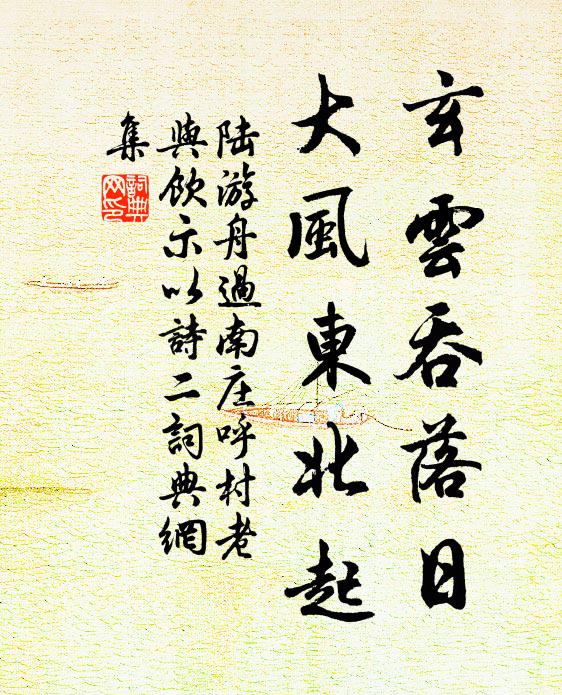 玄雲吞落日
大風東北起
陆游舟過南庄呼村老
與飲示以詩二詞典網
集
詞典
网印